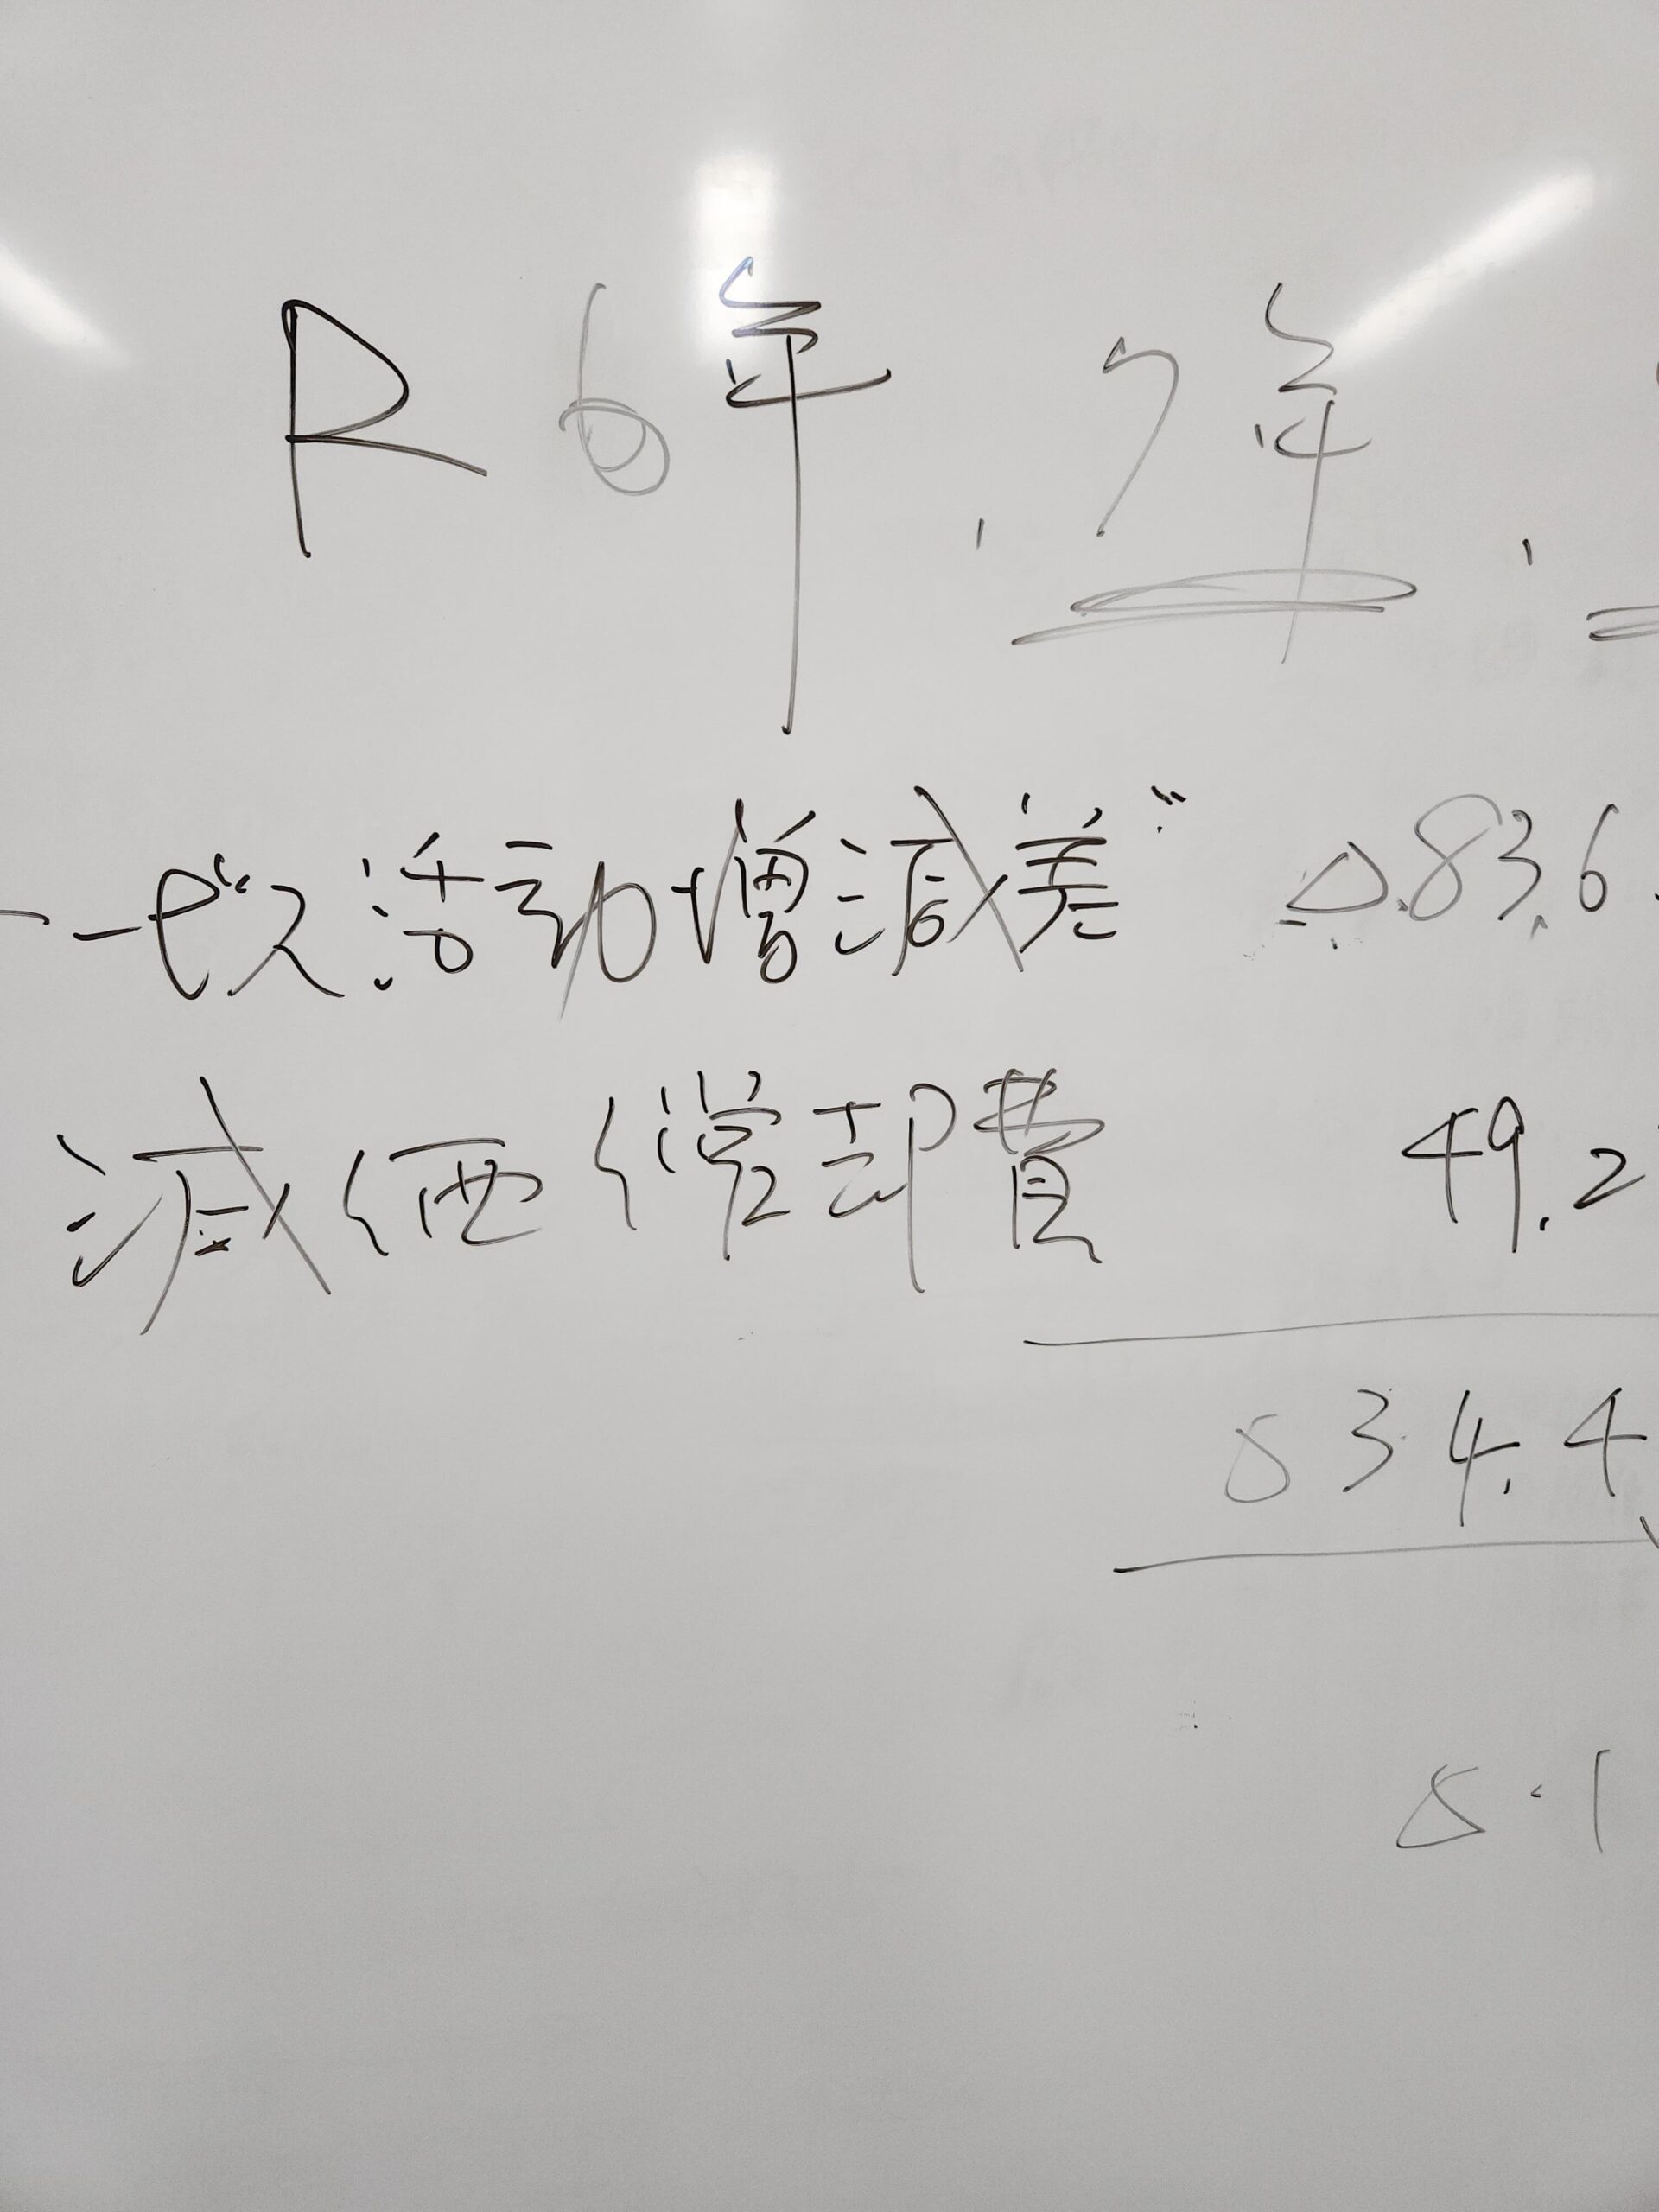 R6年、7年、
サービス活動増減差" △83.6
減価償却費 49.2
△34.4
△1